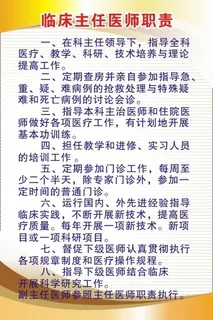 临床主任医师职责
一、在科主任领导下，指导全科
医疗、教学、科研、技术培养与理论
提高工作。
二、定期查房并亲自参加指导急、
重、疑、难病例的抢救处理与特殊疑
难和死亡病例的讨论会诊。
三、指导本科主治医师和住院医
师做好各项医疗工作，有计划地开展
基本功训练。
四、担任教学和进修、实习人员
的培训工作。
五、定期参加门诊工作，每周至
少二个半天，除专家门诊外，参加一
定时间的普通门诊。
六、运行国内、外先进经验指导
临床实践，不断开展新技术，提高医
疗质量。每年开展一项新技术。新项
目或一项科研项目。
七、督促下级医师认真贯彻执行
各项规章制度和医疗操作规程。
八、指导下级医师结合临床
开展科学研究工作。
副主任医师参照主任医师职责执行。